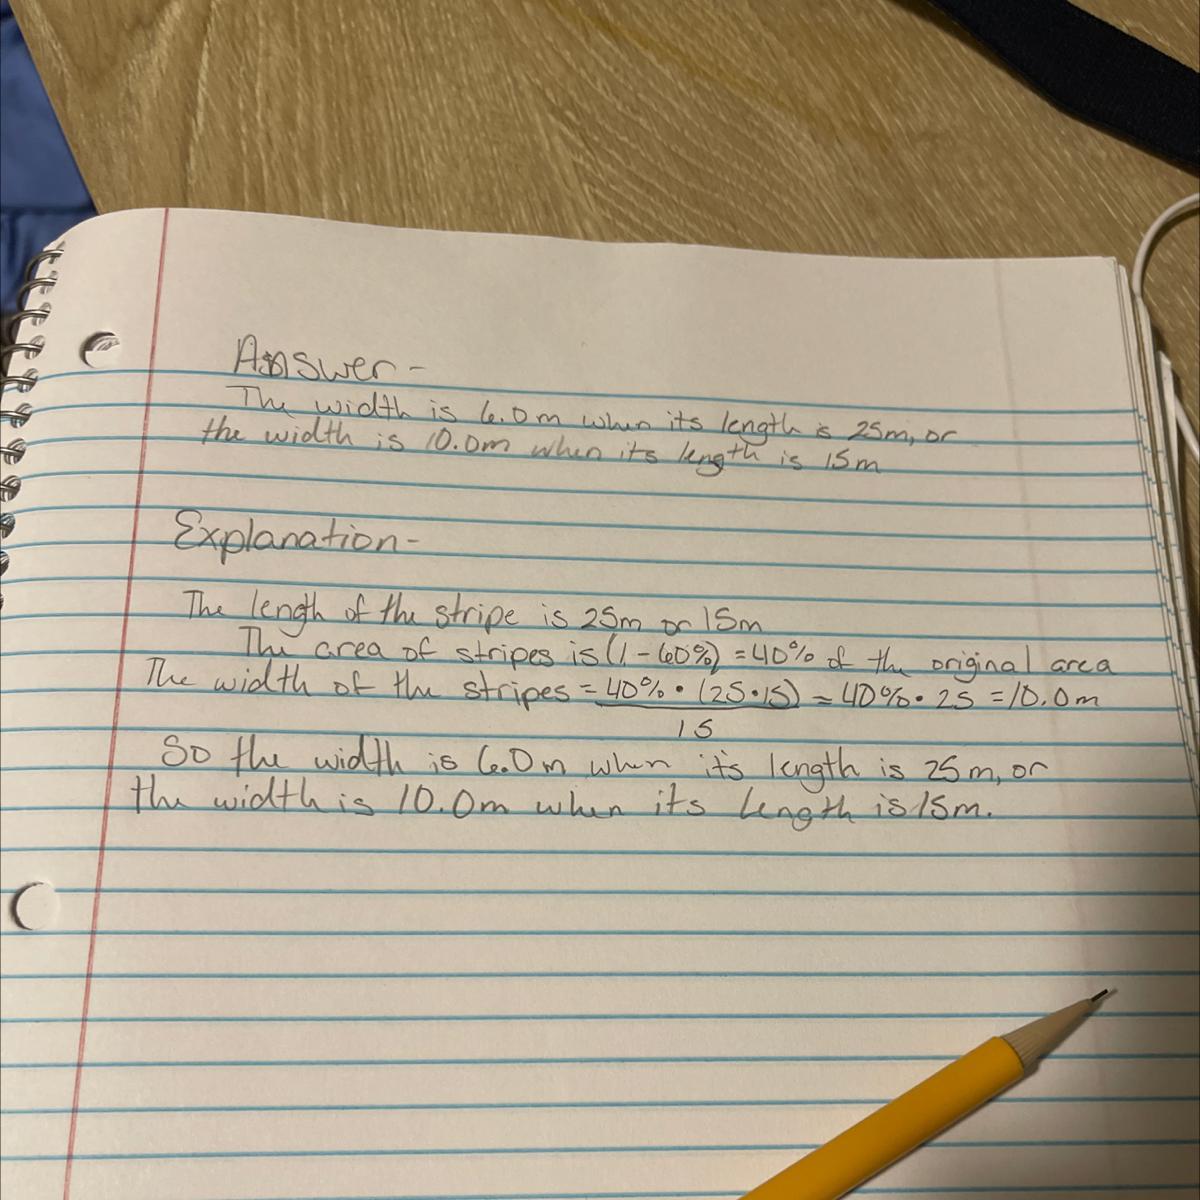 Answer -
The width is 6.0m when its length is 25m, or
the width is 10.0m when its length is 15m
Explanation -
The length of the stripe is 25m or 15m
The area of stripes is (1-60%) = 40% of the original area
The width of the stripes = 40% • (25•15) = 40% • 25 = 10.0m
15
So the width is 6.0m when its length is 25m, or
the width is 10.0m when its length is 15m.